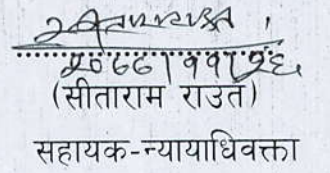 २०८८।११।२६
(सीताराम राउत)
सहायक-न्यायाधिवक्ता